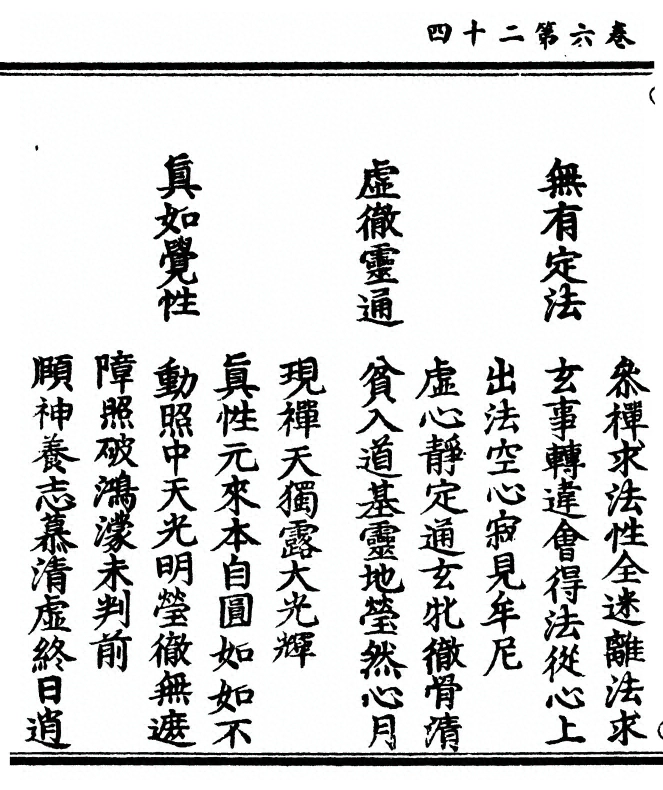 卷六第二十四
無有定法
叅禪求法性全迷離法求
玄事轉違會得法從心上
出法空心寂見牟尼
虛徹靈通
虛心靜定通玄牝徹骨清
貧入道基靈地瑩然心月
現禪天獨露大光輝
眞如覺性
眞性元來本自圓如如不
動照中天光明瑩徹無遮
障照破鴻濛未判前
頤神養志慕清虛終日逍